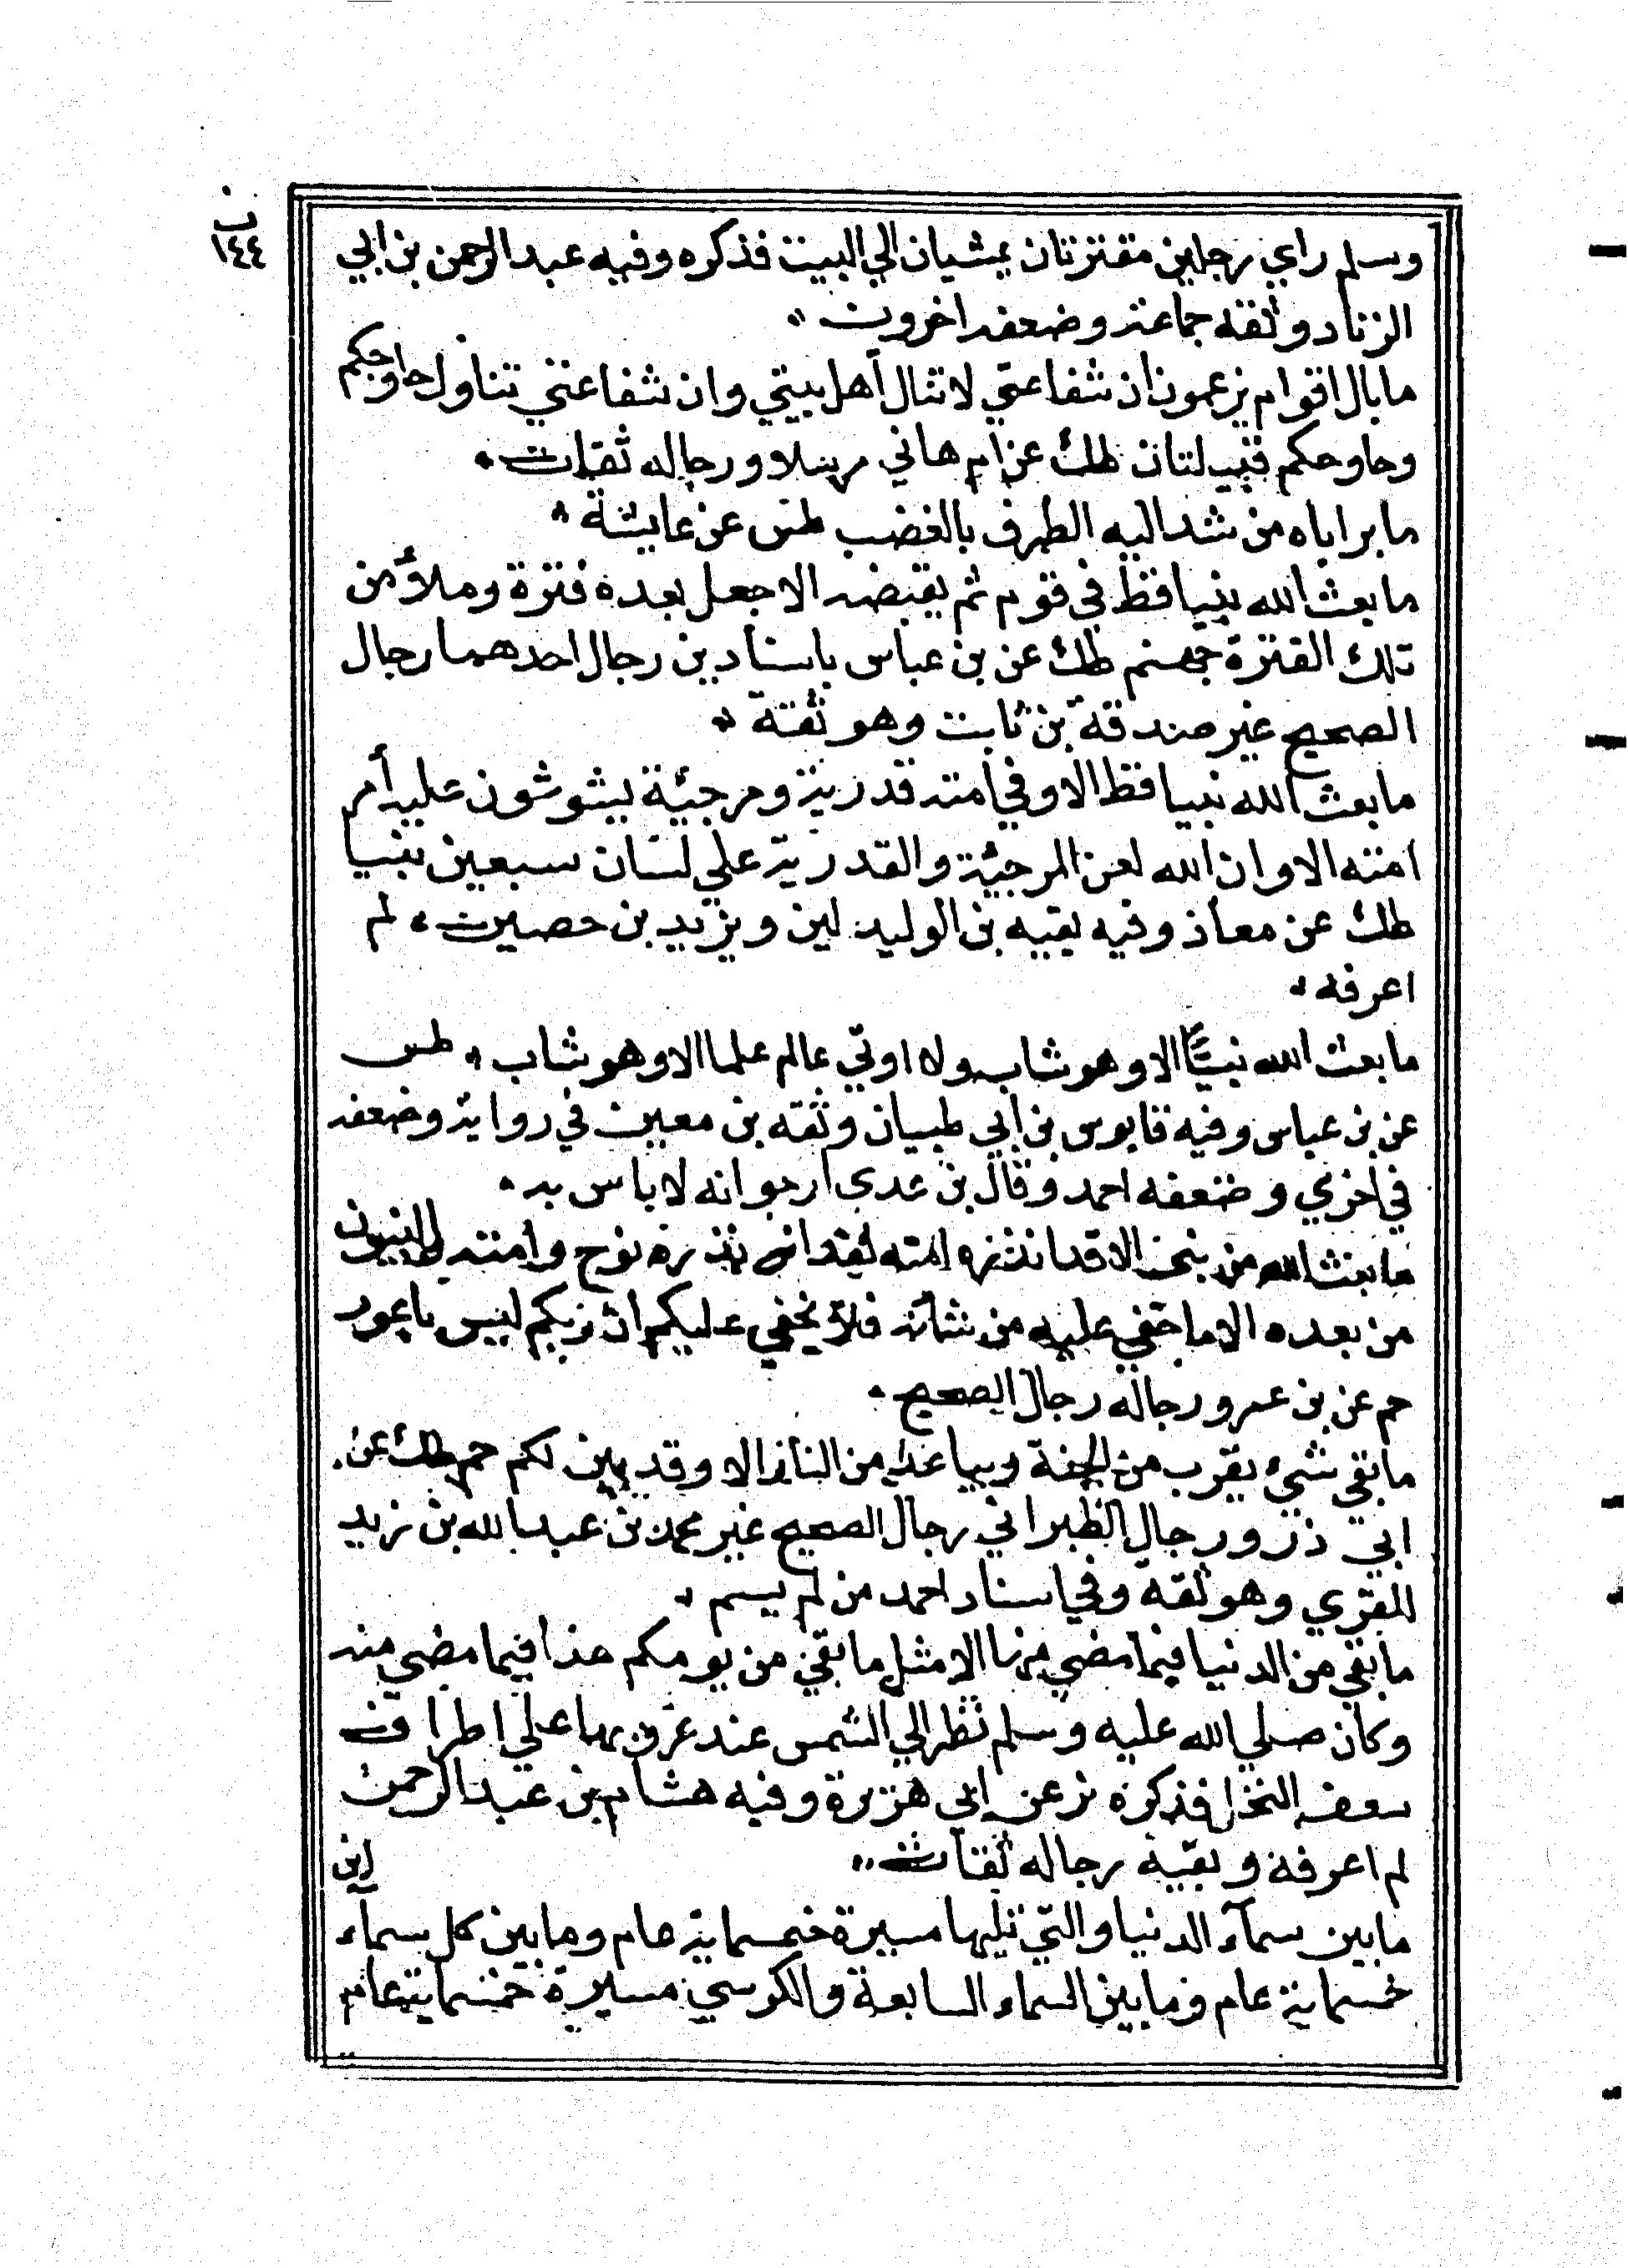 ب
١٤٤
وسلم راي رجلين مقترنان يمشيان الي البيت فذكره وفيه عبد الرحمن بن ابي
الزناد وثقه جماعة وضعفه اخرون
ما بال اقوام يزعمون ان شفاعتي لا تنال اهل بيتي وان شفاعتي تناول حاوحكم
وحاوحكم قبيلتان طك عن ام هاني مرسلا ورجاله ثقات
ما بر اباه من شد اليه الطرف بالغضب طس عن عايشة
ما بعث الله نبيا قط في قوم ثم يقبضه الا جعل بعده فترة وملأ من
تلك الفترة جهنم طك عن بن عباس باسنادين رجال احدهما رجال
الصحيح غير صدقة بن ثابت وهو ثقة
ما بعث الله نبيا قط الا وفي امته قدرية ومرجئة يشوشون عليه أمر
امته الا وان الله لعن المرجئة والقدرية علي لسان سبعين نبيا
طك عن معاذ وفيه بقيه بن الوليد لين ويزيد بن حصين لم
اعرفه
ما بعث الله نبيًّا الا وهو شاب ولا اوتي عالم علما الا وهو شاب طس
عن بن عباس وفيه قابوس بن ابي ظبيان وثقه بن معين في رواية وضعفه
في اخري وضعفه احمد وقال بن عدي ارجوا نه لا باس به
ما بعث الله من نبي الا قد انذره امته لقد انذره نوح وامته والنبيون
من بعده الا ما خفي عليه من شأنه فلا يخفي عليكم ان ربكم ليس باعور
حم عن بن عمر ورجاله رجال الصحيح
ما بقي شيء يقرب من الجنة ويباعد من النار الا وقد بين لكم حم طك عن
ابي ذر ورجال الطبراني رجال الصحيح غير محمد بن عبد الله بن زيد
المقري وهو ثقة وفي اسناد احمد من لم يسم
ما بقي من الدنيا فيما مضي منها الا مثل ما بقي من يومكم هذا فيما مضي منه
وكان صلي الله عليه وسلم نظر الي الشمس عند غروبها علي اطراف
سعف النخل فذكره بز عن ابي هريرة وفيه هشام بن عبد الرحمن
لم اعرفه وبقية رجاله ثقات
ما بين سمآء الدنيا والتي تليها مسيرة خمسماية عام وما بين كل سمآء
خمسماية عام وما بين السماء السابعة والكرسي مسيرة خمسماية عام